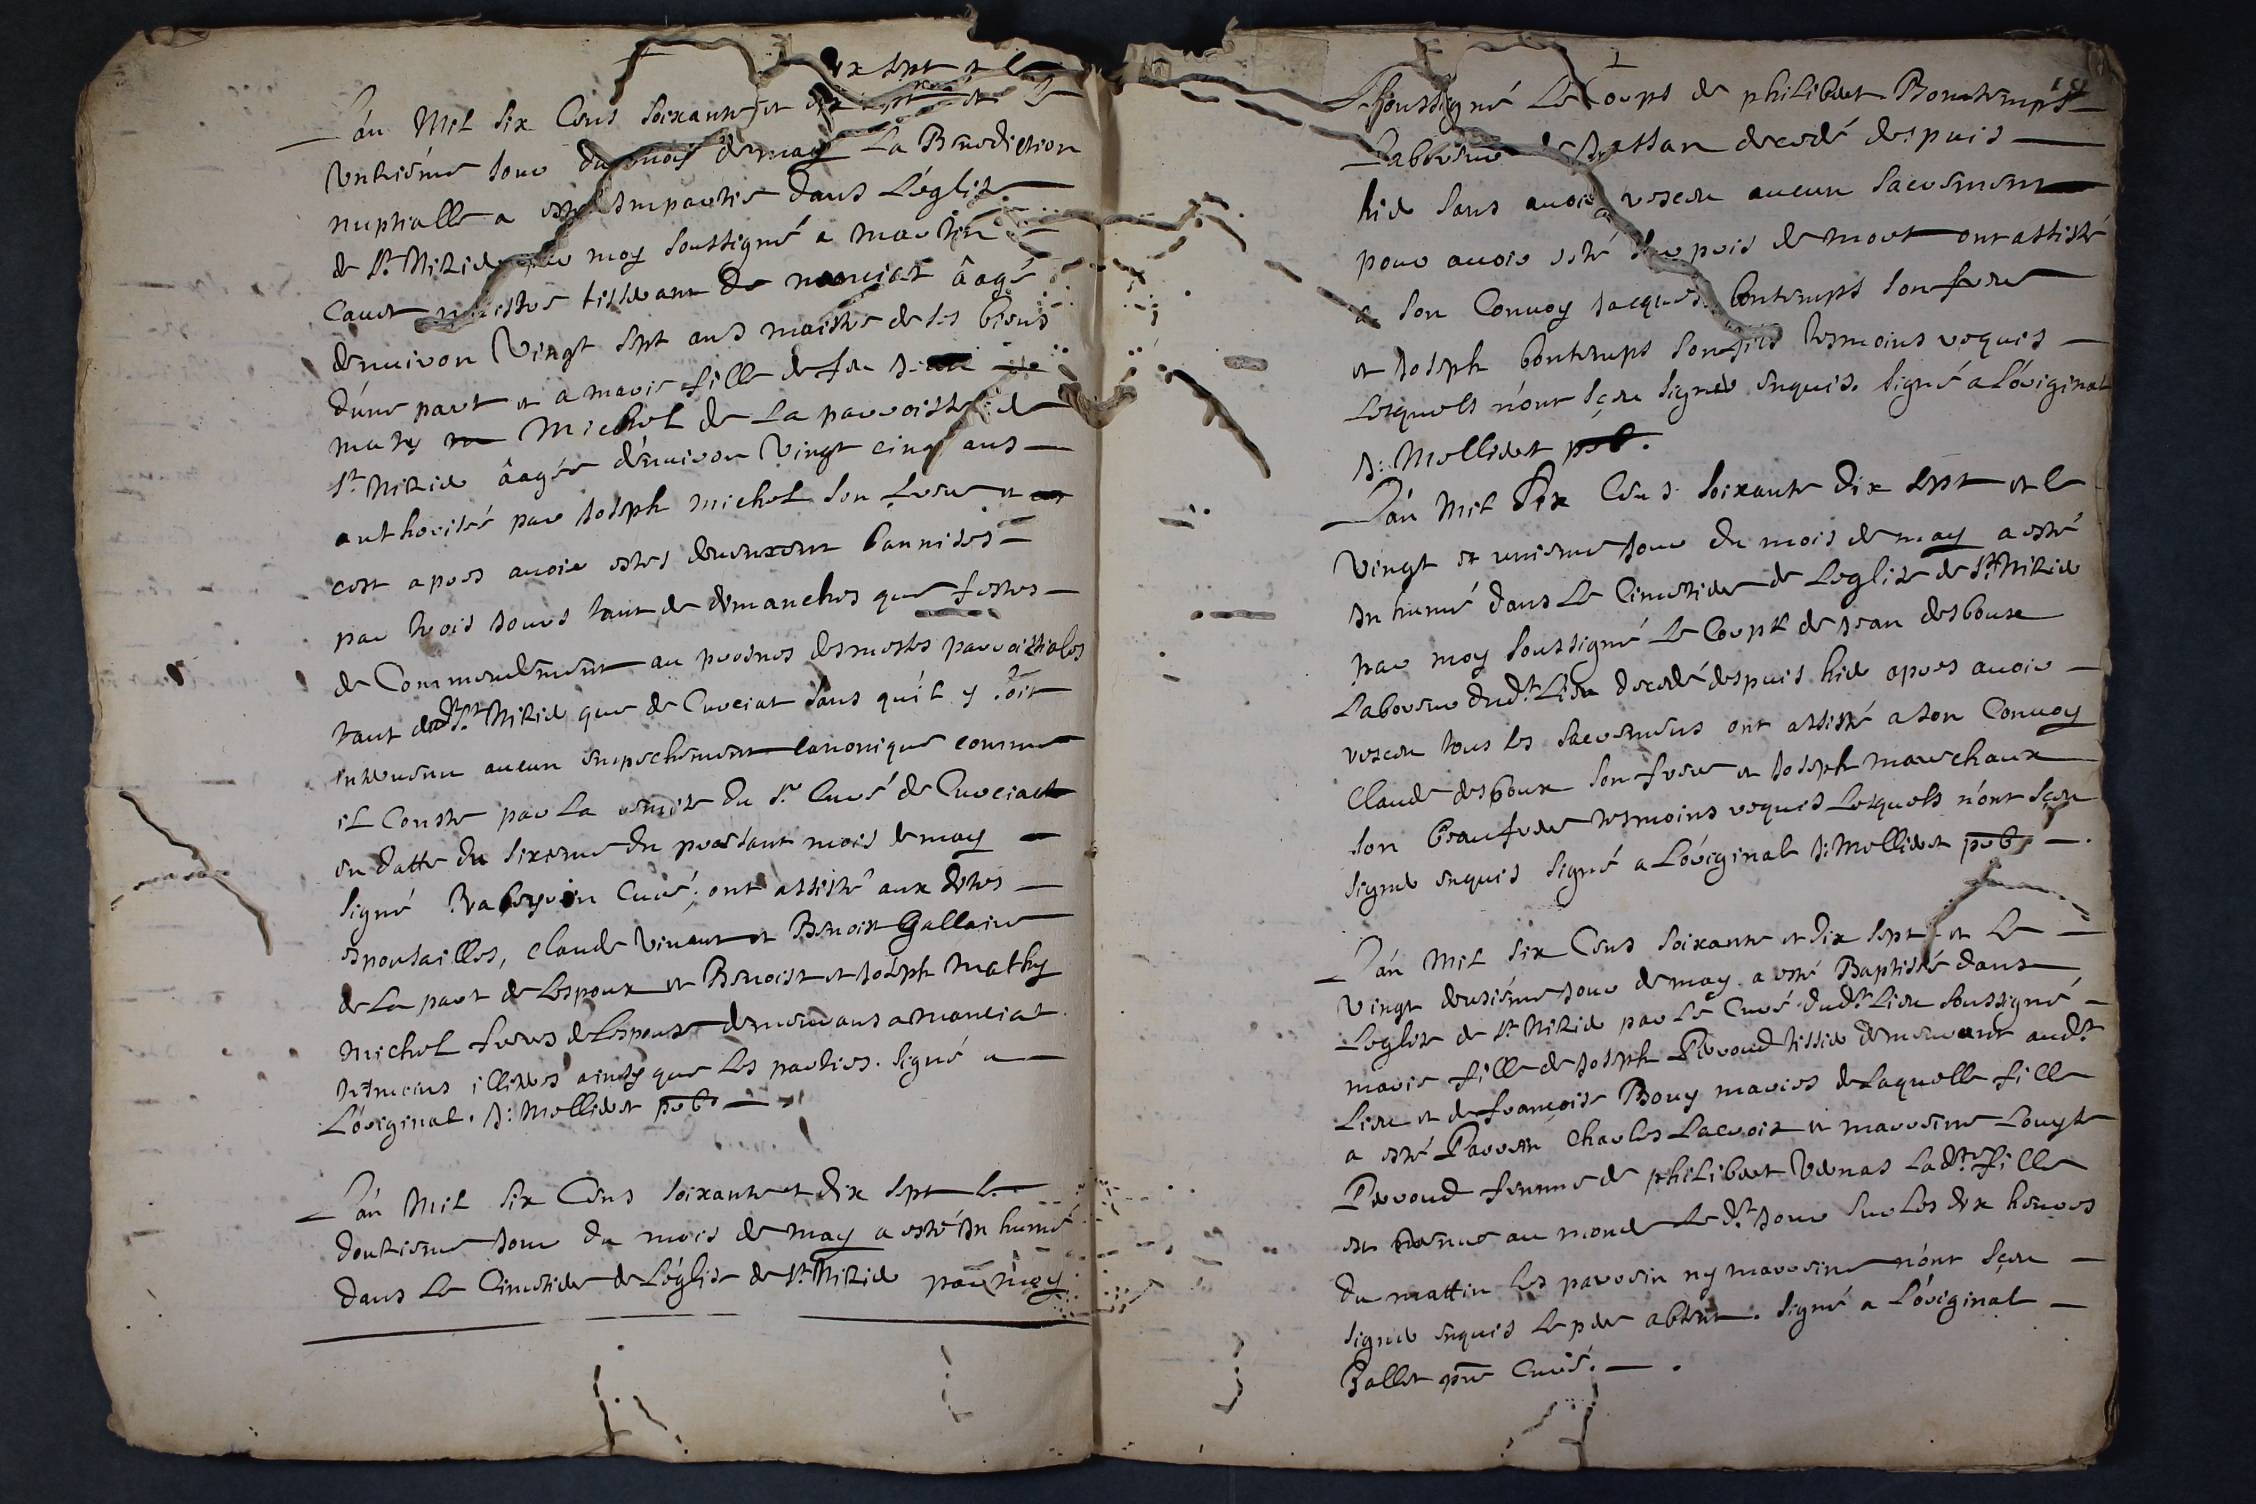 dix sept et le
L'an Mil six Cens soixante et dix sept et le
Unziéme Jour du mois de may La Benediction
nuptialle a esté Impartie dans L'églize
de St Nizier par moy soussigné a Martin
Cauet maistre tisserant de manciat âagé
denuiron Vingt sept ans maistre de ses biens
d'une part et a marie fille de feu Jean
mathy Michel de La parroisse de
St Nizier âagée d'énuiron Vingt cinq ans
authorisée par Joseph michel son frere et
cest apres auoir estes deuement bannises
par trois Jours tant de dimanches que festes
de Commendement au prosnes des messes parroissiales
tant dudt St Nizier que de Cruciat sans qu'il y soit
interuenu aucun empechement canonique comme
il Conste par La remise du Sr Curé de Cruciat
en datte du sixieme du present mois de may
signé curé; ont assisté aux dittes
espousailles, claude Vincent et Benoist Gallaire
de La part de Lespoux et Benoist et Joseph Mathy
Michel freres de Lespouse demeurans a manciat
tesmoins illitres ainsy que les parties. signé a
L'óriginal. J: Mollieret pbr
L'an Mil six Cens soixante et dix sept le
douzieme Jour du mois de may a esté Inhumé
dans Le Cimetiere de L'églize de St Nizier par moy
Soussigné Le Corps de philibert Bontemps
Laboureur de decedé despuis
hier sans auoir reseu aucun sacrement
pour auoir esté surpris de mort ont assisté
a son Conuoy Jacques bontemps son frere
et Joseph bontemps son fils tesmoins requis
Lesquels n'ont sçeu signer enquis. signé a L'óriginal
J: Mollieret pbr.
L'an Mil Six Cens soixante dix sept et le
Vingt et unieme Jour du mois de may a esté
Inhumé dans Le Cimetiere de Leglize de St Nizier
par moy soussigné Le Corps de Jean desboux
Laboureur dudt Lieu decedé despuis hier apres auoir
reseu tous les sacremens ont assisté a son Conuoy
Claude desboux son frere et Joseph mareschaux
son beaufrere tesmoins requis Lesquels n'ont sçeu
signer enquis signé a L'óriginal J: Mollieret pbr
L'an Mil six Cens soixante et dix sept et Le
Vingt deuziéme Jour de may a esté Baptisée dans
Leglize de St Nizier par Le Curé dudt Lieu soussigné
marie fille de Joseph Perroud tissier demeurant audt
Lieu et de françoise Bouy mariés de Laquelle fille
a esté Parrein Charles Lacroix et marreine Louyse
Perroud femme de philibert Vernas Ladte fille
est Venue au monde Le dt Jour sur Les dix heures
du mattin Les parrein ny marreine n'ont sçeu
signer enquis Le pere absent. signé a L'original
Ballet pre Curé.